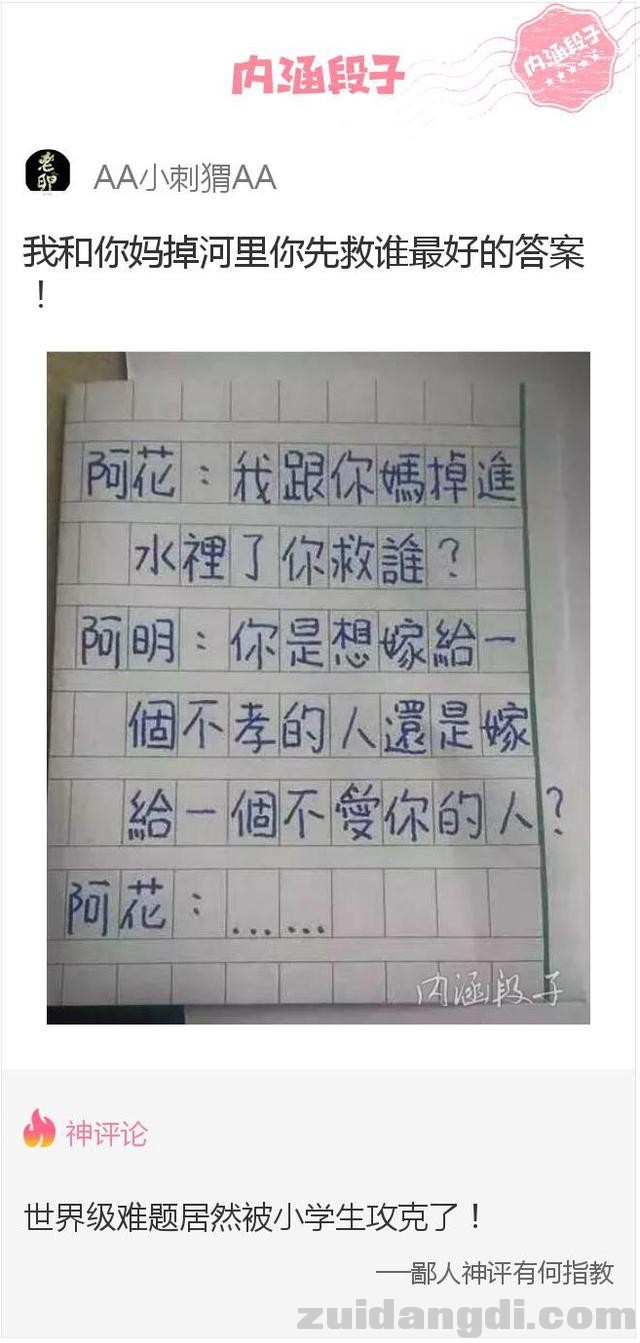 内涵段子
内涵段子
老卵
AA小刺猬AA
我和你妈掉河里你先救谁最好的答案
！
阿花：我跟你媽掉進
水裡了你救誰？
阿明：你是想嫁給一
個不孝的人還是嫁
給一個不愛你的人？
阿花：……
内涵段子
神评论
世界级难题居然被小学生攻克了！
──鄙人神评有何指教
zuidangdi.com